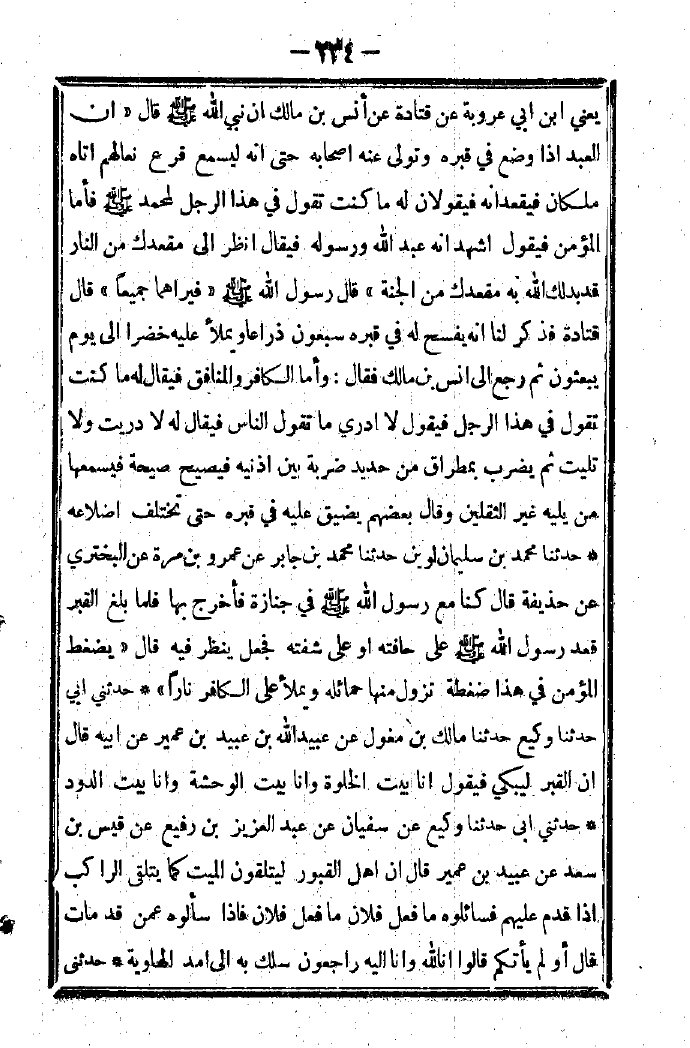 — ٢٣٤ —
يعني ابن ابي عروبة عن قتادة عن أنس بن مالك ان نبي الله ﷺ قال « ان
العبد اذا وضع في قبره وتولى عنه اصحابه حتى انه ليسمع قرع نعالهم اتاه
ملكان فيقعدانه فيقولان له ما كنت تقول في هذا الرجل لمحمد ﷺ فأما
المؤمن فيقول اشهد انه عبد الله ورسوله فيقال انظر الى مقعدك من النار
قد بدلك الله به مقعدك من الجنة » قال رسول الله ﷺ « فيراهما جميعاً » قال
قتادة فذكر لنا انه يفسح له في قبره سبعون ذراعا ويملأ عليه خضرا الى يوم
يبعثون ثم رجع الى انس بن مالك فقال : وأما الكافر والمنافق فيقال له ما كنت
تقول في هذا الرجل فيقول لا ادري ما تقول الناس فيقال له لا دريت ولا
تليت ثم يضرب بمطراق من حديد ضربة بين اذنيه فيصيح صيحة فيسمعها
من يليه غير الثقلين وقال بعضهم يضيق عليه في قبره حتى تختلف اضلاعه
* حدثنا محمد بن سليمان لوين حدثنا محمد بن جابر عن عمرو بن مرة عن البختري
عن حذيفة قال كنا مع رسول الله ﷺ في جنازة فأخرج بها فلما بلغ القبر
قعد رسول الله ﷺ على حافته او على شفته فجعل ينظر فيه قال « يضغط
المؤمن في هذا ضغطة تزول منها حمائله ويملأ على الكافر ناراً » * حدثني ابي
حدثنا وكيع حدثنا مالك بن مغول عن عبيدالله بن عبيد بن عمير عن ابيه قال
ان القبر ليبكي فيقول انا بيت الخلوة وانا بيت الوحشة وانا بيت الدود
* حدثني ابى حدثنا وكيع عن سفيان عن عبد العزيز بن رفيع عن قيس بن
سعد عن عبيد بن عمير قال ان اهل القبور ليتلقون الميت كما يتلقى الراكب
اذا قدم عليهم فسائلوه ما فعل فلان ما فعل فلان فاذا سألوه عمن قد مات
قال أو لم يأتكم قالوا انالله وانا اليه راجعون سلك به الى امد الهاوية * حدثنى